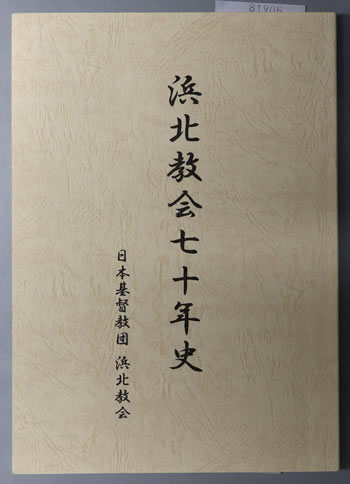 浜北教会七十年史
日本基督教団 浜北教会